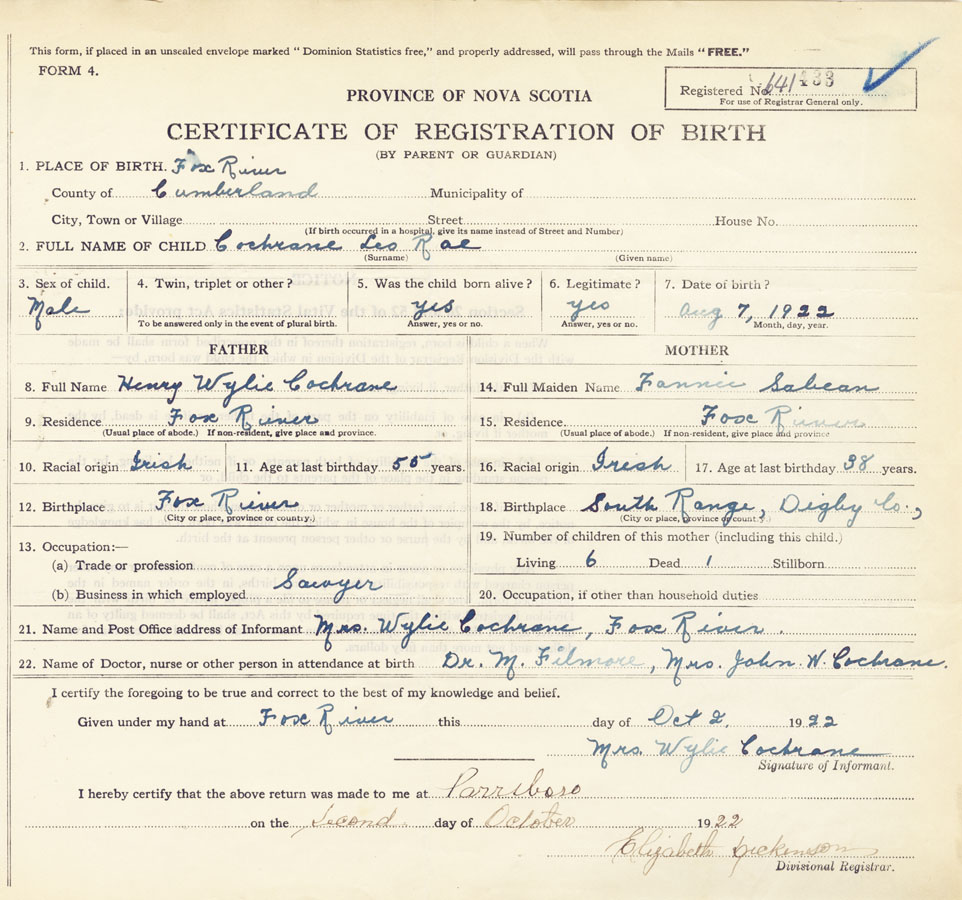 This form, if placed in an unsealed envelope marked "Dominion Statistics free," and properly addressed, will pass through the Mails "FREE."
FORM 4.
Registered No. 641 433
For use of Registrar General only.
PROVINCE OF NOVA SCOTIA
CERTIFICATE OF REGISTRATION OF BIRTH
(BY PARENT OR GUARDIAN)
1. PLACE OF BIRTH. Fox River
County of Cumberland Municipality of
City, Town or Village Street House No.
(If birth occurred in a hospital, give its name instead of Street and Number)
2. FULL NAME OF CHILD Cochrane Leo Rae
(Surname) (Given name)
3. Sex of child. 4. Twin, triplet or other? 5. Was the child born alive? 6. Legitimate? 7. Date of birth?
Male yes yes Aug 7, 1922
To be answered only in the event of plural birth. Answer, yes or no. Answer, yes or no. Month, day, year.
FATHER MOTHER
8. Full Name Henry Wylie Cochrane 14. Full Maiden Name Fannie Sabean
9. Residence Fox River 15. Residence. Fox River
(Usual place of abode.) If non-resident, give place and province. (Usual place of abode.) If non-resident, give place and province
10. Racial origin Irish 11. Age at last birthday 55 years. 16. Racial origin Irish 17. Age at last birthday 38 years.
12. Birthplace Fox River 18. Birthplace South Range, Digby Co.,
(City or place, province or country.) (City or place, province or country.)
13. Occupation:— 19. Number of children of this mother (including this child.)
(a) Trade or profession Living 6 Dead 1 Stillborn
(b) Business in which employed Sawyer 20. Occupation, if other than household duties
21. Name and Post Office address of Informant Mrs. Wylie Cochrane, Fox River.
22. Name of Doctor, nurse or other person in attendance at birth Dr. M. Filmore, Mrs. John W. Cochrane.
I certify the foregoing to be true and correct to the best of my knowledge and belief.
Given under my hand at Fox River this day of Oct 2, 1922
Mrs. Wylie Cochrane
Signature of Informant.
I hereby certify that the above return was made to me at Parrsboro
on the Second day of October 1922
Elizabeth Dickinson
Divisional Registrar.